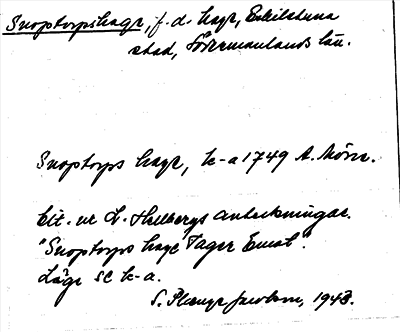 Snoptorpshage, f.d. hage, Eskilstuna
stad, Södermanlands län.
Snoptorps hage, k-a 1749 A. Mörn.
Cit. ur L. Hellbergs anteckningar.
"Snoptorps hage Tager Emot".
Läge se k-a.
S. Jacobson, 1948.